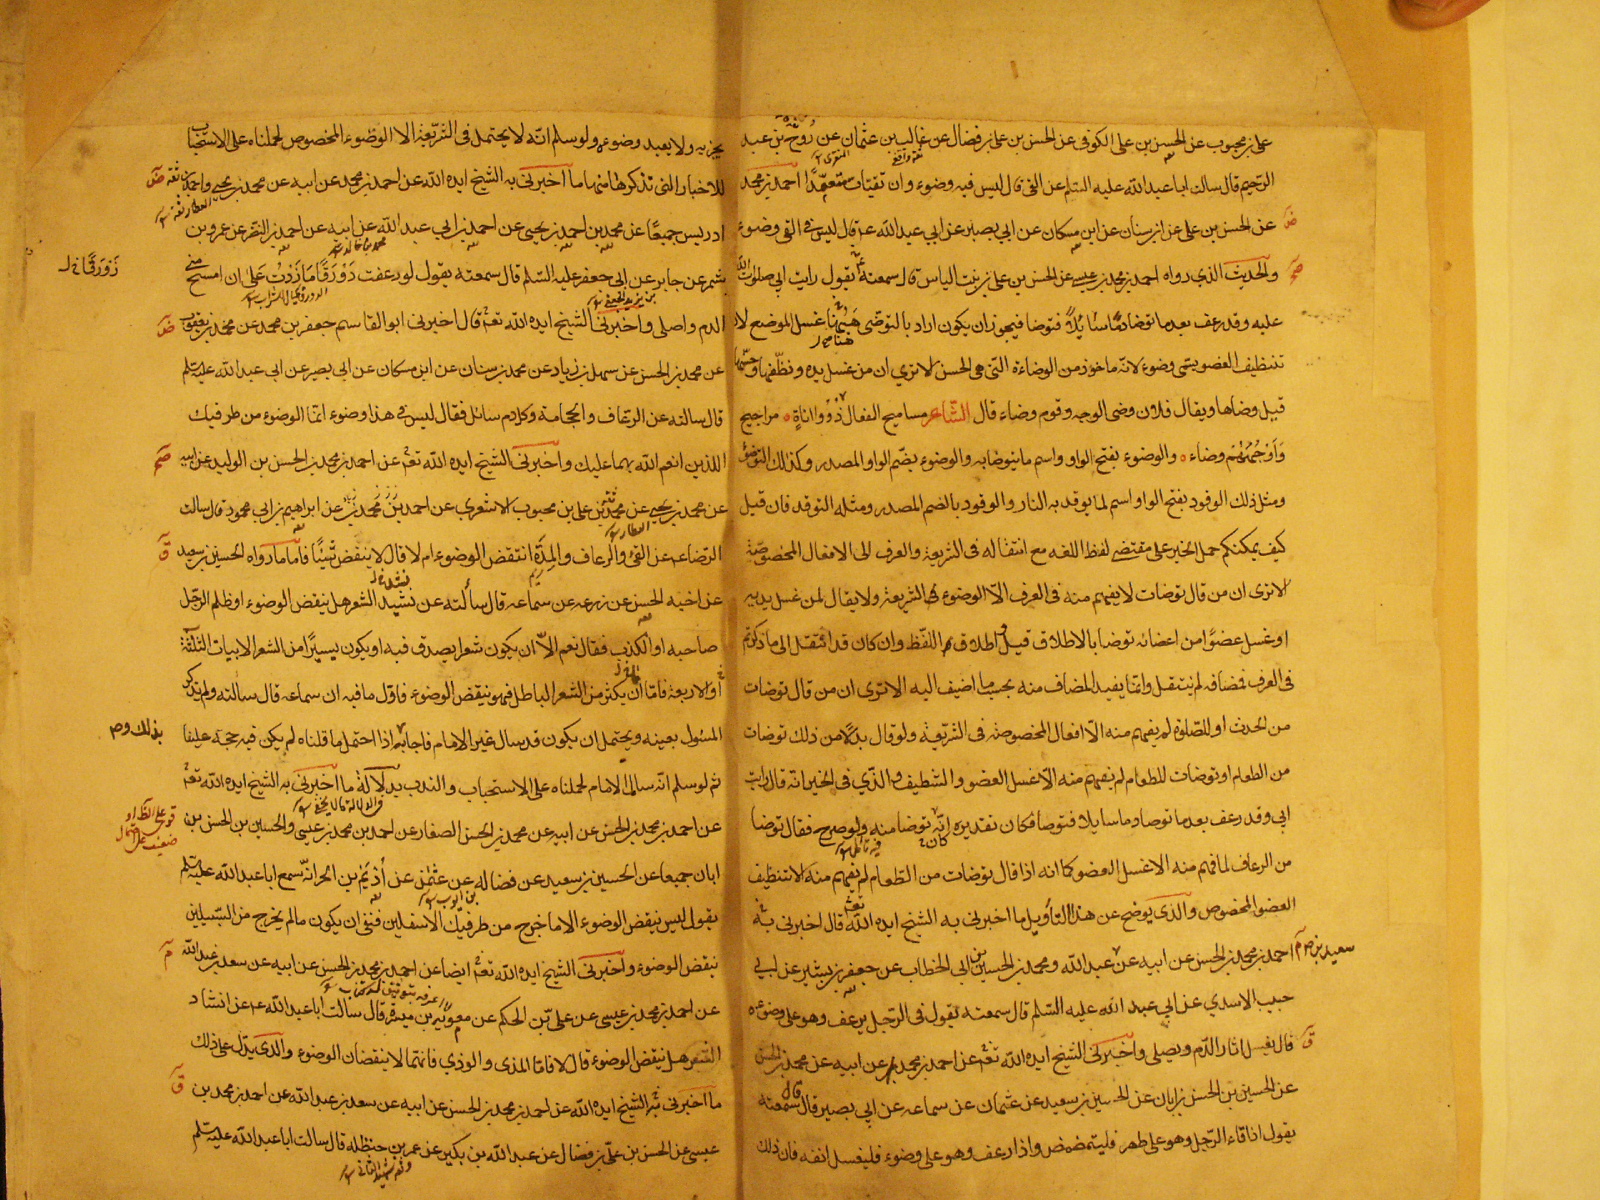 على بن محبوب عن الحسن بن على الكوفى عن الحسن بن على بن فضال عن غالب بن عثمان عن روح بن عبد
الرحيم قال سالت ابا عبد الله عليه السلم عن القى قال ليس فيه وضوء وان تقيات متعمدا احمد بن محمد
عن الحسن بن على عن ابن سنان عن ابن مسكان عن ابى بصير عن ابى عبد الله ع قال ليس فى القى وضوء
والحديث الذى رواه احمد بن محمد بن عيسى عن الحسن بن على بن بنت الياس قال سمعته يقول رايت ابى صلوات الله
عليه وقد رعف بعد ما توضا دما سائلا فتوضا فيجوز ان يكون اراد بالتوضى هيهنا غسل الموضع لان
تنظيف العضو يسمى وضوء لانه ماخوذ من الوضاءة التى هى الحسن الا ترى ان من غسل يده ونظفها وحسنها
قيل وضاها ويقال فلان وضى الوجه وقوم وضاء قال الشاعر مساميح الفعال ذوو اناة مراجيح
واوجههم وضاء والوضوء بفتح الواو اسم ما يتوضا به والوضوء بضم الواو المصدر وكذلك التوضؤ
ومثل ذلك الوقود بفتح الواو اسم لما يوقد به النار والوقود بالضم المصدر ومثله التوقد فان قيل
كيف يمكنكم حمل الخبر على مقتضى لفظ اللغه مع انتقاله فى الشريعة والعرف الى الافعال المخصوصة
الا ترى ان من قال توضات لا يفهم منه فى العرف الا الوضوء فى الشريعة ولا يقال لمن غسل يديه
او غسل عضوا من اعضائه توضا بالاطلاق قيل اطلاق اللفظ وان كان قد انتقل الى ما ذكرتم
فى العرف فمضافه لم ينتقل وانما يفيد المضاف منه بحسب ما اضيف اليه الا ترى ان من قال توضات
من الحدث او للصلوة لم يفهم منه الا افعال المخصوصة فى الشريعة ولو قال بدلا من ذلك توضات
من الطعام او توضات للطعام لم يفهم منه الا غسل العضو والتنظيف والذى فى الخبر انه قال رايت
ابى وقد رعف بعد ما توضا وما سايلا فتوضا فكان تقديره انه توضا منه ولو صرح فقال توضا
من الرعاف لما فهم منه الا غسل العضو كما انه اذا قال توضات من الطعام لم يفهم منه الا تنظيف
العضو المخصوص والذى يوضح عن هذا التاويل ما اخبرنى به الشيخ ايده الله قال اخبرنى به
احمد بن محمد بن الحسن عن ابيه عن عبد الله ومحمد بن الحسين بن ابى الخطاب عن جعفر بن بشير عن ابى
سعيد بن
حبيب الاسدى عن ابى عبد الله عليه السلم قال سمعته يقول فى الرجل يرعف وهو على وضوء
قال يغسل اثار الدم ويصلى واخبرنى الشيخ ايده الله عن احمد بن محمد عن ابيه عن محمد بن الحسن
عن الحسين بن الحسن بن ابان عن الحسين بن سعيد عن عثمان عن سماعه عن ابى بصير قال سمعته
يقول اذا قاء الرجل وهو على طهر فليتمضمض واذا رعف وهو على وضوء فليغسل انفه فان ذلك
يجزيه ولا يعيد وضوءه ولو سلم انه لا يحتمل فى الشريعة الا الوضوء المخصوص لحملناه على الاستحباب
للاخبار التى نذكرها منها ما اخبرنى به الشيخ ايده الله عن احمد بن محمد عن ابيه عن محمد بن يحيى واحمد بن
ادريس جميعا عن محمد بن احمد بن يحيى عن احمد بن ابى عبد الله عن ابيه عن احمد بن النضر عن عمرو بن
شمر عن جابر عن ابى جعفر عليه السلم قال سمعته يقول لو رعفت دورقا ما زدت على ان امسح منى
زورقا خ ل
الدم واصلى واخبرنى الشيخ ايده الله قال اخبرنى ابو القاسم جعفر بن محمد عن محمد بن يعقوب
عن محمد بن الحسن عن سهل بن زياد عن محمد بن سنان عن ابن مسكان عن ابى بصير عن ابى عبد الله عليه السلم
قال سالته عن الرعاف والحجامة وكل دم سائل فقال ليس فى هذا وضوء انما الوضوء من طرفيك
اللذين انعم الله بهما عليك واخبرنى الشيخ ايده الله عن احمد بن محمد بن الحسن بن الوليد عن ابيه
عن محمد بن يحيى عن محمد بن على بن محبوب الاشعرى عن احمد بن محمد عن ابراهيم بن ابى محمود قال سالت
الرضا ع عن القئ والرعاف والمدة اتنقض الوضوء ام لا قال لا ينقض شيئا فاما ما رواه الحسين بن سعيد
عن اخيه الحسن عن زرعه عن سماعه قال سألته عن نشيد الشعر هل ينقض الوضوء او ظلم الرجل
صاحبه او الكذب فقال نعم الا ان يكون شعرا يصدق فيه او يكون يسيرا من الشعر الابيات الثلثة
او الاربعة فاما ان يكثر من الشعر الباطل فهو ينقض الوضوء فاول ما فيه ان سماعه قال سالته ولم يذكر
المسئول بعينه ويحتمل ان يكون قد سال غير الامام فاجابه بذلك واذا احتمل ما قلناه لم يكن فيه حجة علينا
ثم لو سلم انه سال الامام لحملناه على الاستحباب والندب بدلالة ما اخبرنى به الشيخ ايده الله
عن احمد بن محمد بن الحسن عن ابيه عن محمد بن الحسن الصفار عن احمد بن محمد بن عيسى والحسين بن الحسن بن
ابان جميعا عن الحسين بن سعيد عن فضاله عن عثمن عن أديم بن الحر انه سمع ابا عبد الله عليه السلم
يقول ليس ينقض الوضوء الا ما خرج من طرفيك الاسفلين فنفى ان يكون ما لم يخرج من السبيلين
ينقض الوضوء واخبرنى الشيخ ايده الله ايضا عن احمد بن محمد بن الحسن عن ابيه عن سعد بن عبد الله
عن احمد بن محمد بن عيسى عن على بن الحكم عن معوية بن ميسرة قال سالت ابا عبد الله ع عن انشاد
الشعر هل ينقض الوضوء قال لا فاما المذى والوذى فانهما لا ينقضان الوضوء والذى يدل على ذلك
ما اخبرنى به الشيخ ايده الله عن احمد بن محمد بن الحسن عن ابيه عن سعد بن عبد الله عن احمد بن محمد بن
عيسى عن الحسن بن على بن فضال عن عبد الله بن بكير عن عمر بن حنظله قال سالت ابا عبد الله عليه السلم